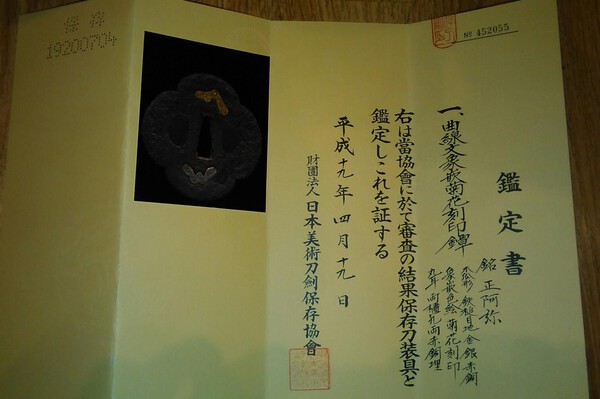 保存
19200704
No 452055
鑑定書
一、曲線文象嵌菊花刻印鐔
銘 正阿弥
木瓜形 鉄槌目地 金銀赤銅
象嵌色絵 菊花刻印
丸耳 両櫃孔 両赤銅埋
右は當協會に於て審査の結果保存刀装具と
鑑定しこれを証する
平成十九年四月十九日
財團法人日本美術刀劍保存協會